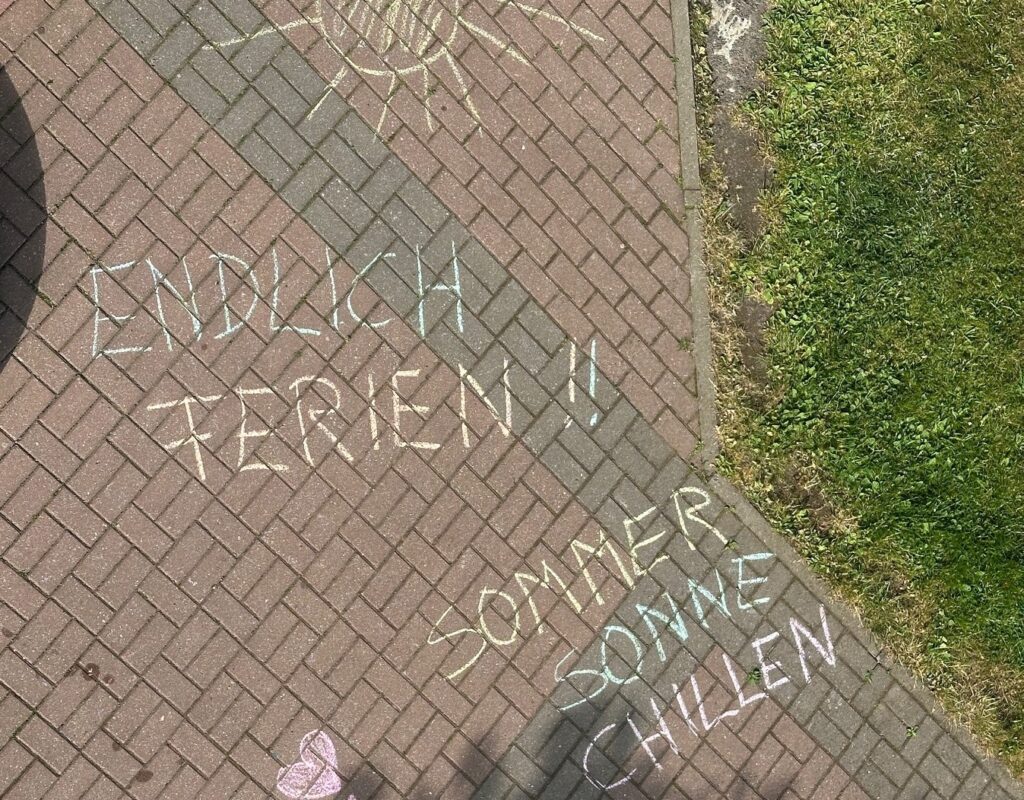 ENDLICH
FERIEN !!
SOMMER
SONNE
CHILLEN